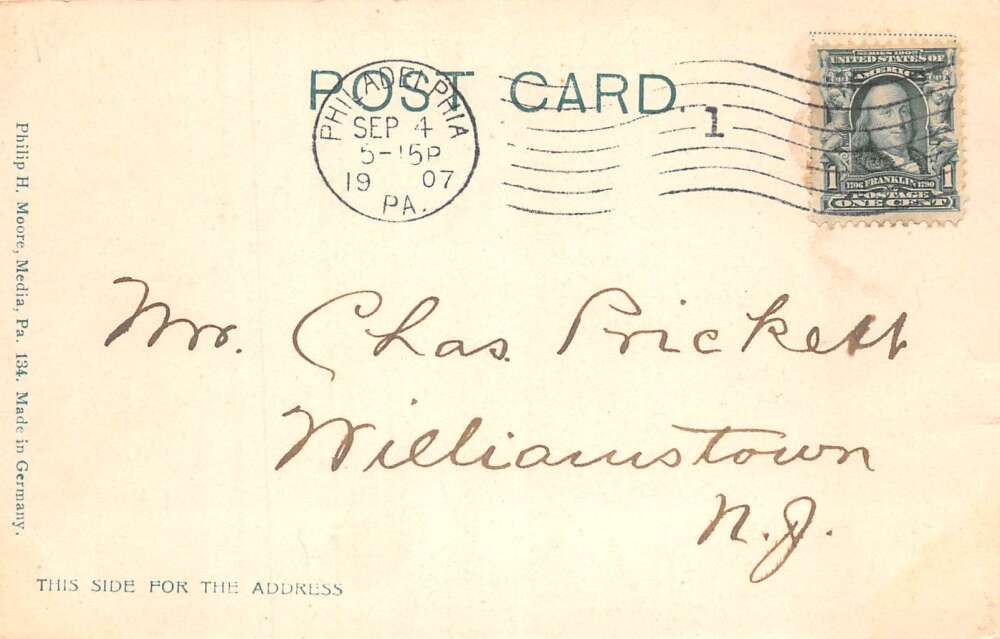 POST CARD.
PHILADELPHIA
SEP 4
5-15P
19 07
PA.
1
SERIES 1902
UNITED STATES OF
AMERICA
1 1706 FRANKLIN 1790 1
POSTAGE
ONE CENT
Mr. Chas. Prickett
Williamstown
N.J.
Philip H. Moore, Media, Pa. 134. Made in Germany.
THIS SIDE FOR THE ADDRESS